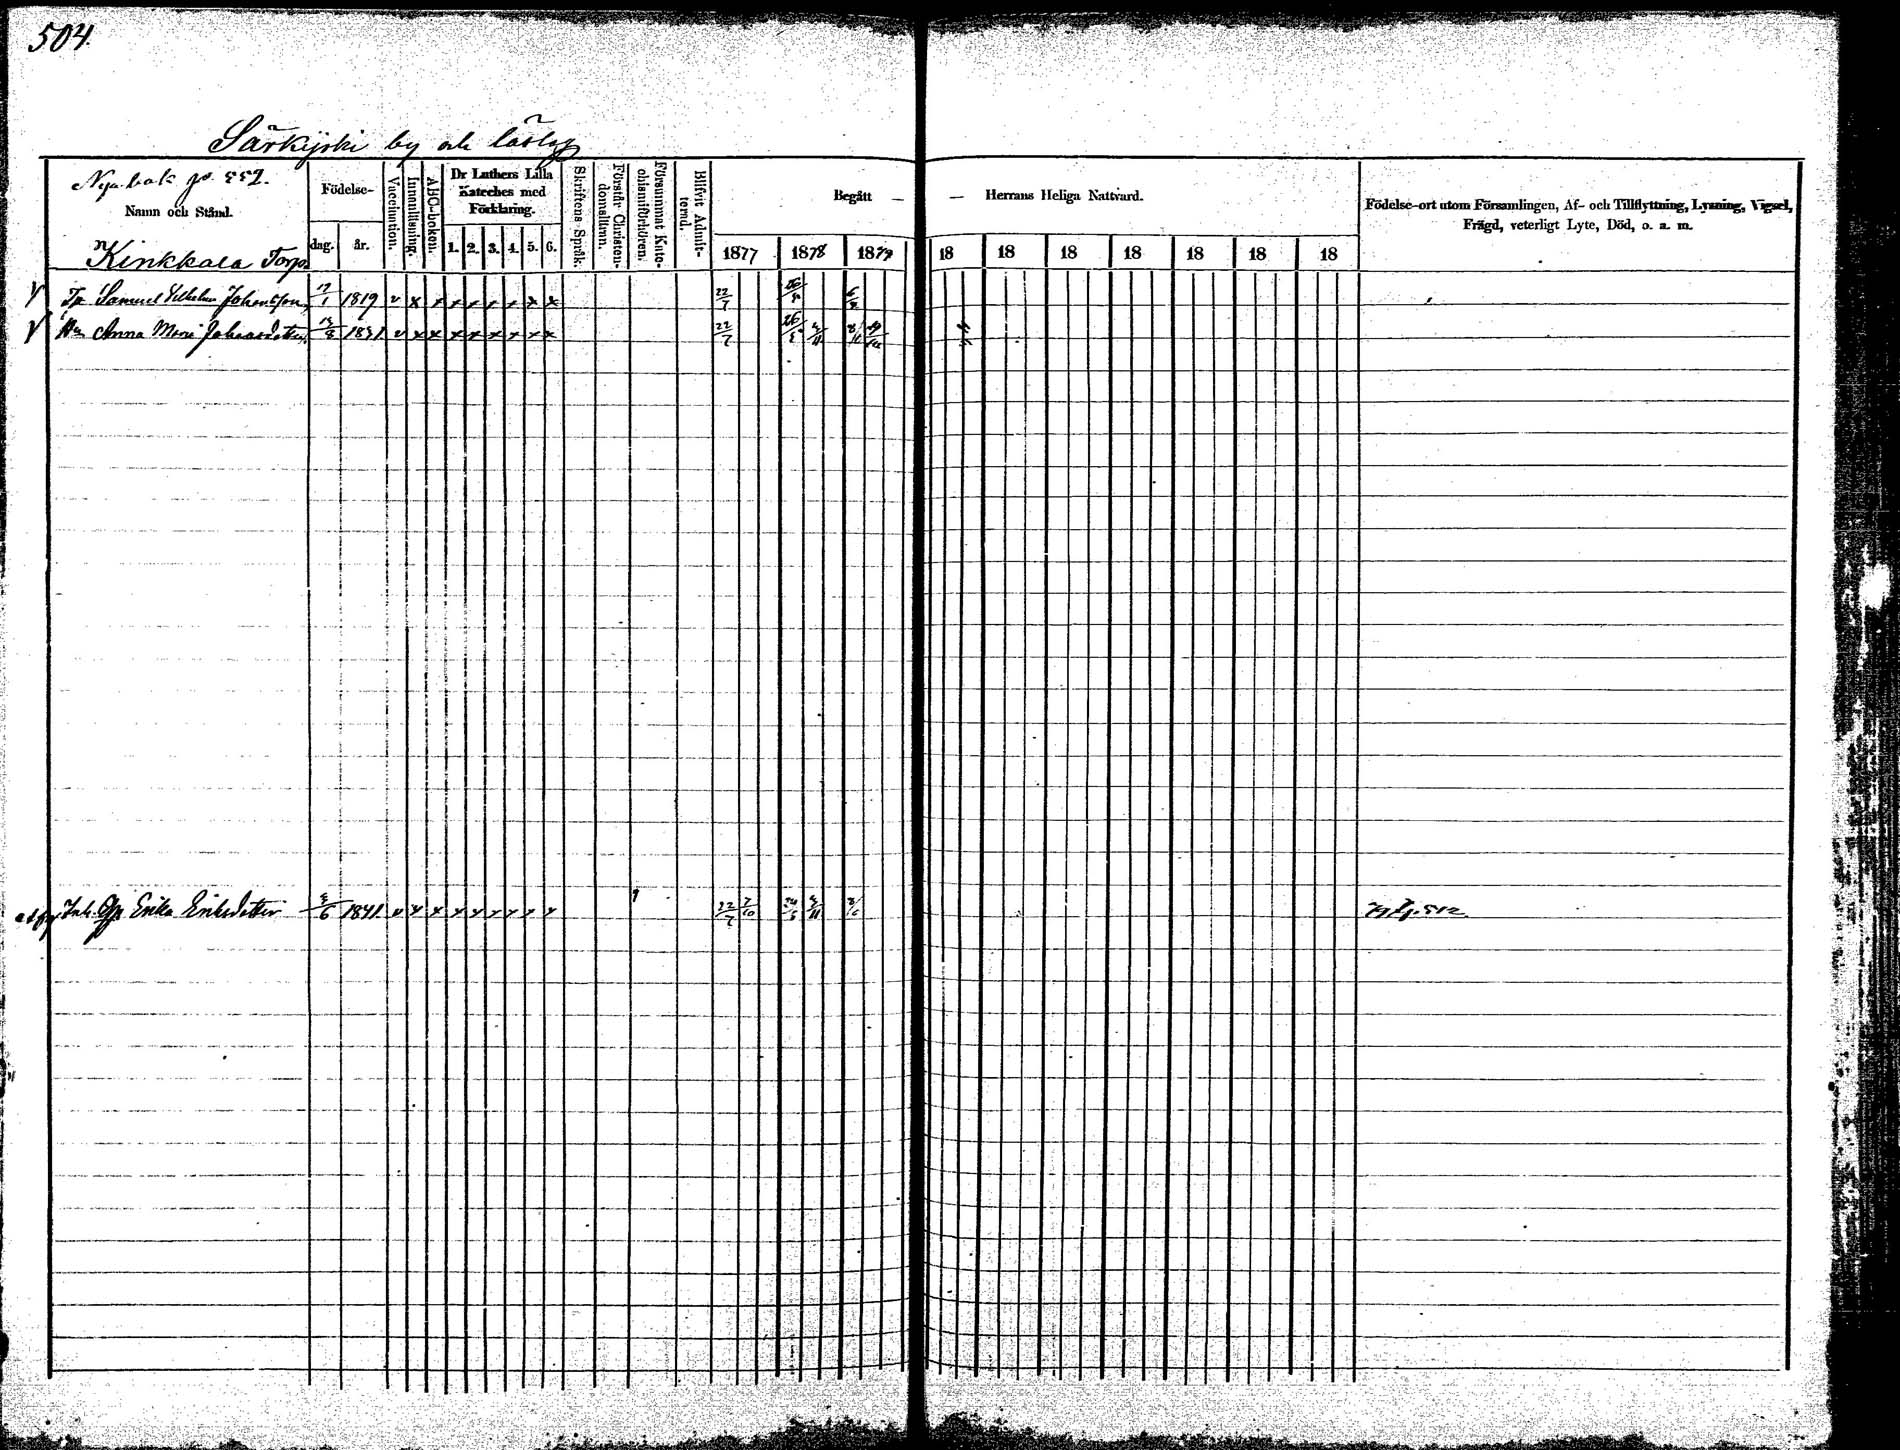 504.
Särkijski by och läslag
Nya bok p. 552.
Namn och Stånd.
Kinkkala Torp.
Födelse-
dag. år.
Vaccination.
Innanläsning.
ABC-boken.
Dr Luthers Lilla
Kateches med
Förklaring.
1. 2. 3. 4. 5. 6.
Skriftens Språk.
Förstår Christen-
domsllinn.
Försummat Kate-
chismiförhören.
Blifvit Admit-
terad.
Begått — — Herrans Heliga Nattvard.
1877 1878 1879 18 18 18 18 18 18 18
Födelse-ort utom Församlingen, Af- och Tillflyttning, Lysning, Vigsel,
Frägd, veterligt Lyte, Död, o. a. m.
V Tp Samuel Vilhelm Johansson 17/1 1819 v x x x x x x x x x 22/7 26/5
V Hu Anna Maria Johansdotter 1831 v x x x x x x x x x 22/7 26/5 3/11
Inh. Erika Eriksdotter 3/6 1841 v x x x x x x x x 22/7 7/10 3/11 p. 512